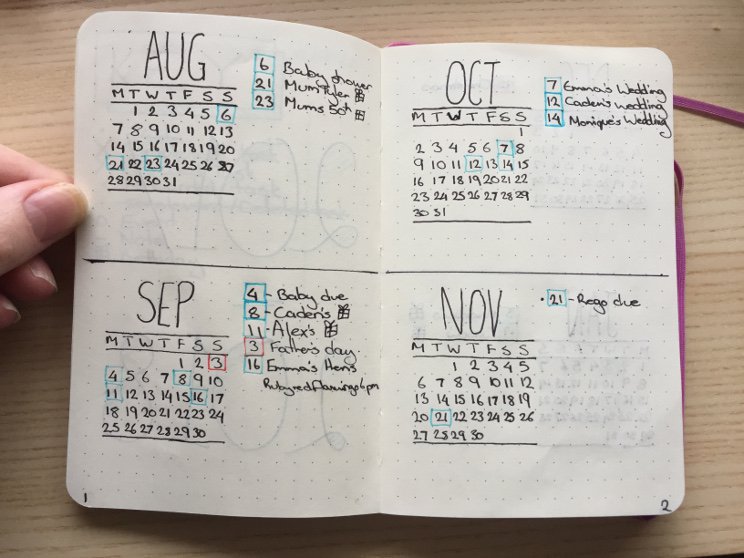 AUG
M T W T F S S
1 2 3 4 5 6
7 8 9 10 11 12 13
14 15 16 17 18 19 20
21 22 23 24 25 26 27
28 29 30 31
6 Baby shower
21 Mum Tyler
23 Mums 50th
SEP
M T W T F S S
1 2 3
4 5 6 7 8 9 10
11 12 13 14 15 16 17
18 19 20 21 22 23 24
25 26 27 28 29 30
4 - Baby due
8 - Caden's
11 - Alex's
3 Father's day
16 Emma's Hens
Ruby red flamingo 6pm
1
OCT
M T W T F S S
1
2 3 4 5 6 7 8
9 10 11 12 13 14 15
16 17 18 19 20 21 22
23 24 25 26 27 28 29
30 31
7 Emma's Wedding
12 Caden's wedding
14 Monique's Wedding
NOV
M T W T F S S
1 2 3 4 5
6 7 8 9 10 11 12
13 14 15 16 17 18 19
20 21 22 23 24 25 26
27 28 29 30
· 21 - Rego due
2